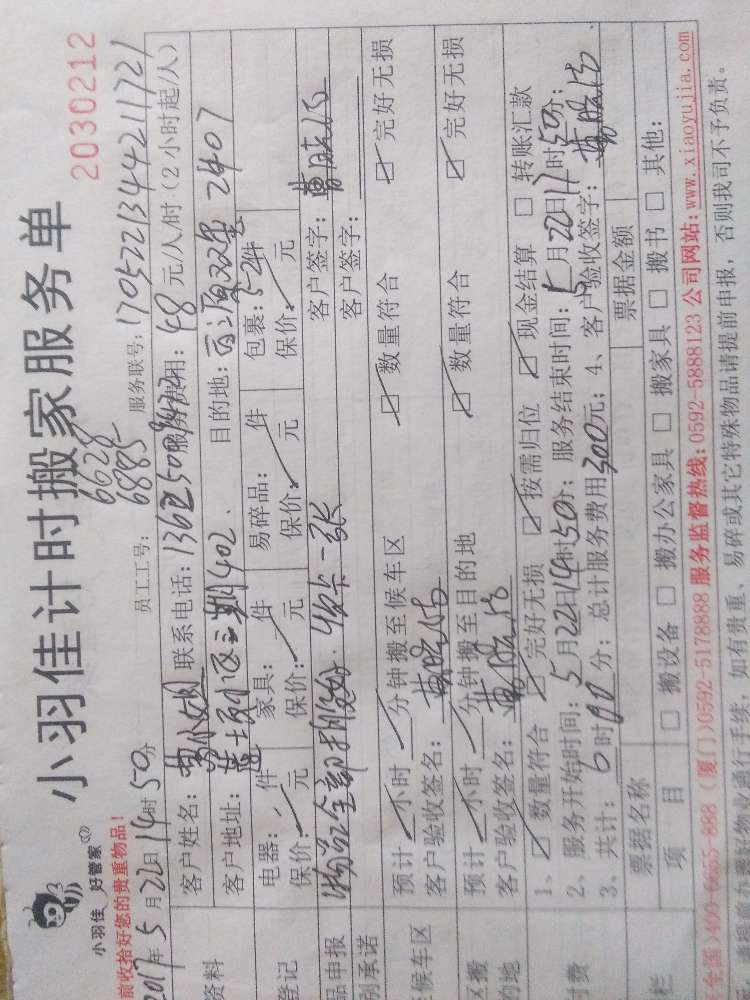 小羽佳计时搬家服务单
2030212
小羽佳 好管家
前收拾好您的贵重物品！
6628
6885
员工工号： 服务联号：1705221344211721
2017年5月22日14时50分
资料
客户姓名： 小姐 联系电话： 服务费用：48元/人/时.（2小时起/人）
客户地址： 402. 目的地： 2407
登记
电器： 件 家具： 件 易碎品： 件 包裹：52件
保价： 元 保价： 元 保价： 元 保价： 元
品申报
客户签字：
别承诺
客户签字：
至候车区
预计 小时 分钟搬至候车区 ☑数量符合 ☑完好无损
客户验收签名：
区搬
的地
预计 小时 分钟搬至目的地 ☑数量符合 ☑完好无损
客户验收签名：
付费
1、☑数量符合 ☑完好无损 ☑按需归位 ☑现金结算 □转账汇款
2、服务开始时间：5月22日14时50分；服务结束时间：5月22日17时50分；
3、共计： 时 分；总计服务费用300元；4、客户验收签字：
栏
票据名称 票据金额
项 目 □搬设备 □搬办公家具 □搬家具 □搬书 □其他:
全国)400-6655-888 (厦门)0592-5178888 服务监督热线:0592-5888123 公司网站:www.xiaoyujia.com
物业通行手续，如有贵重、易碎或其它特殊物品请提前申报，否则我司不予负责。